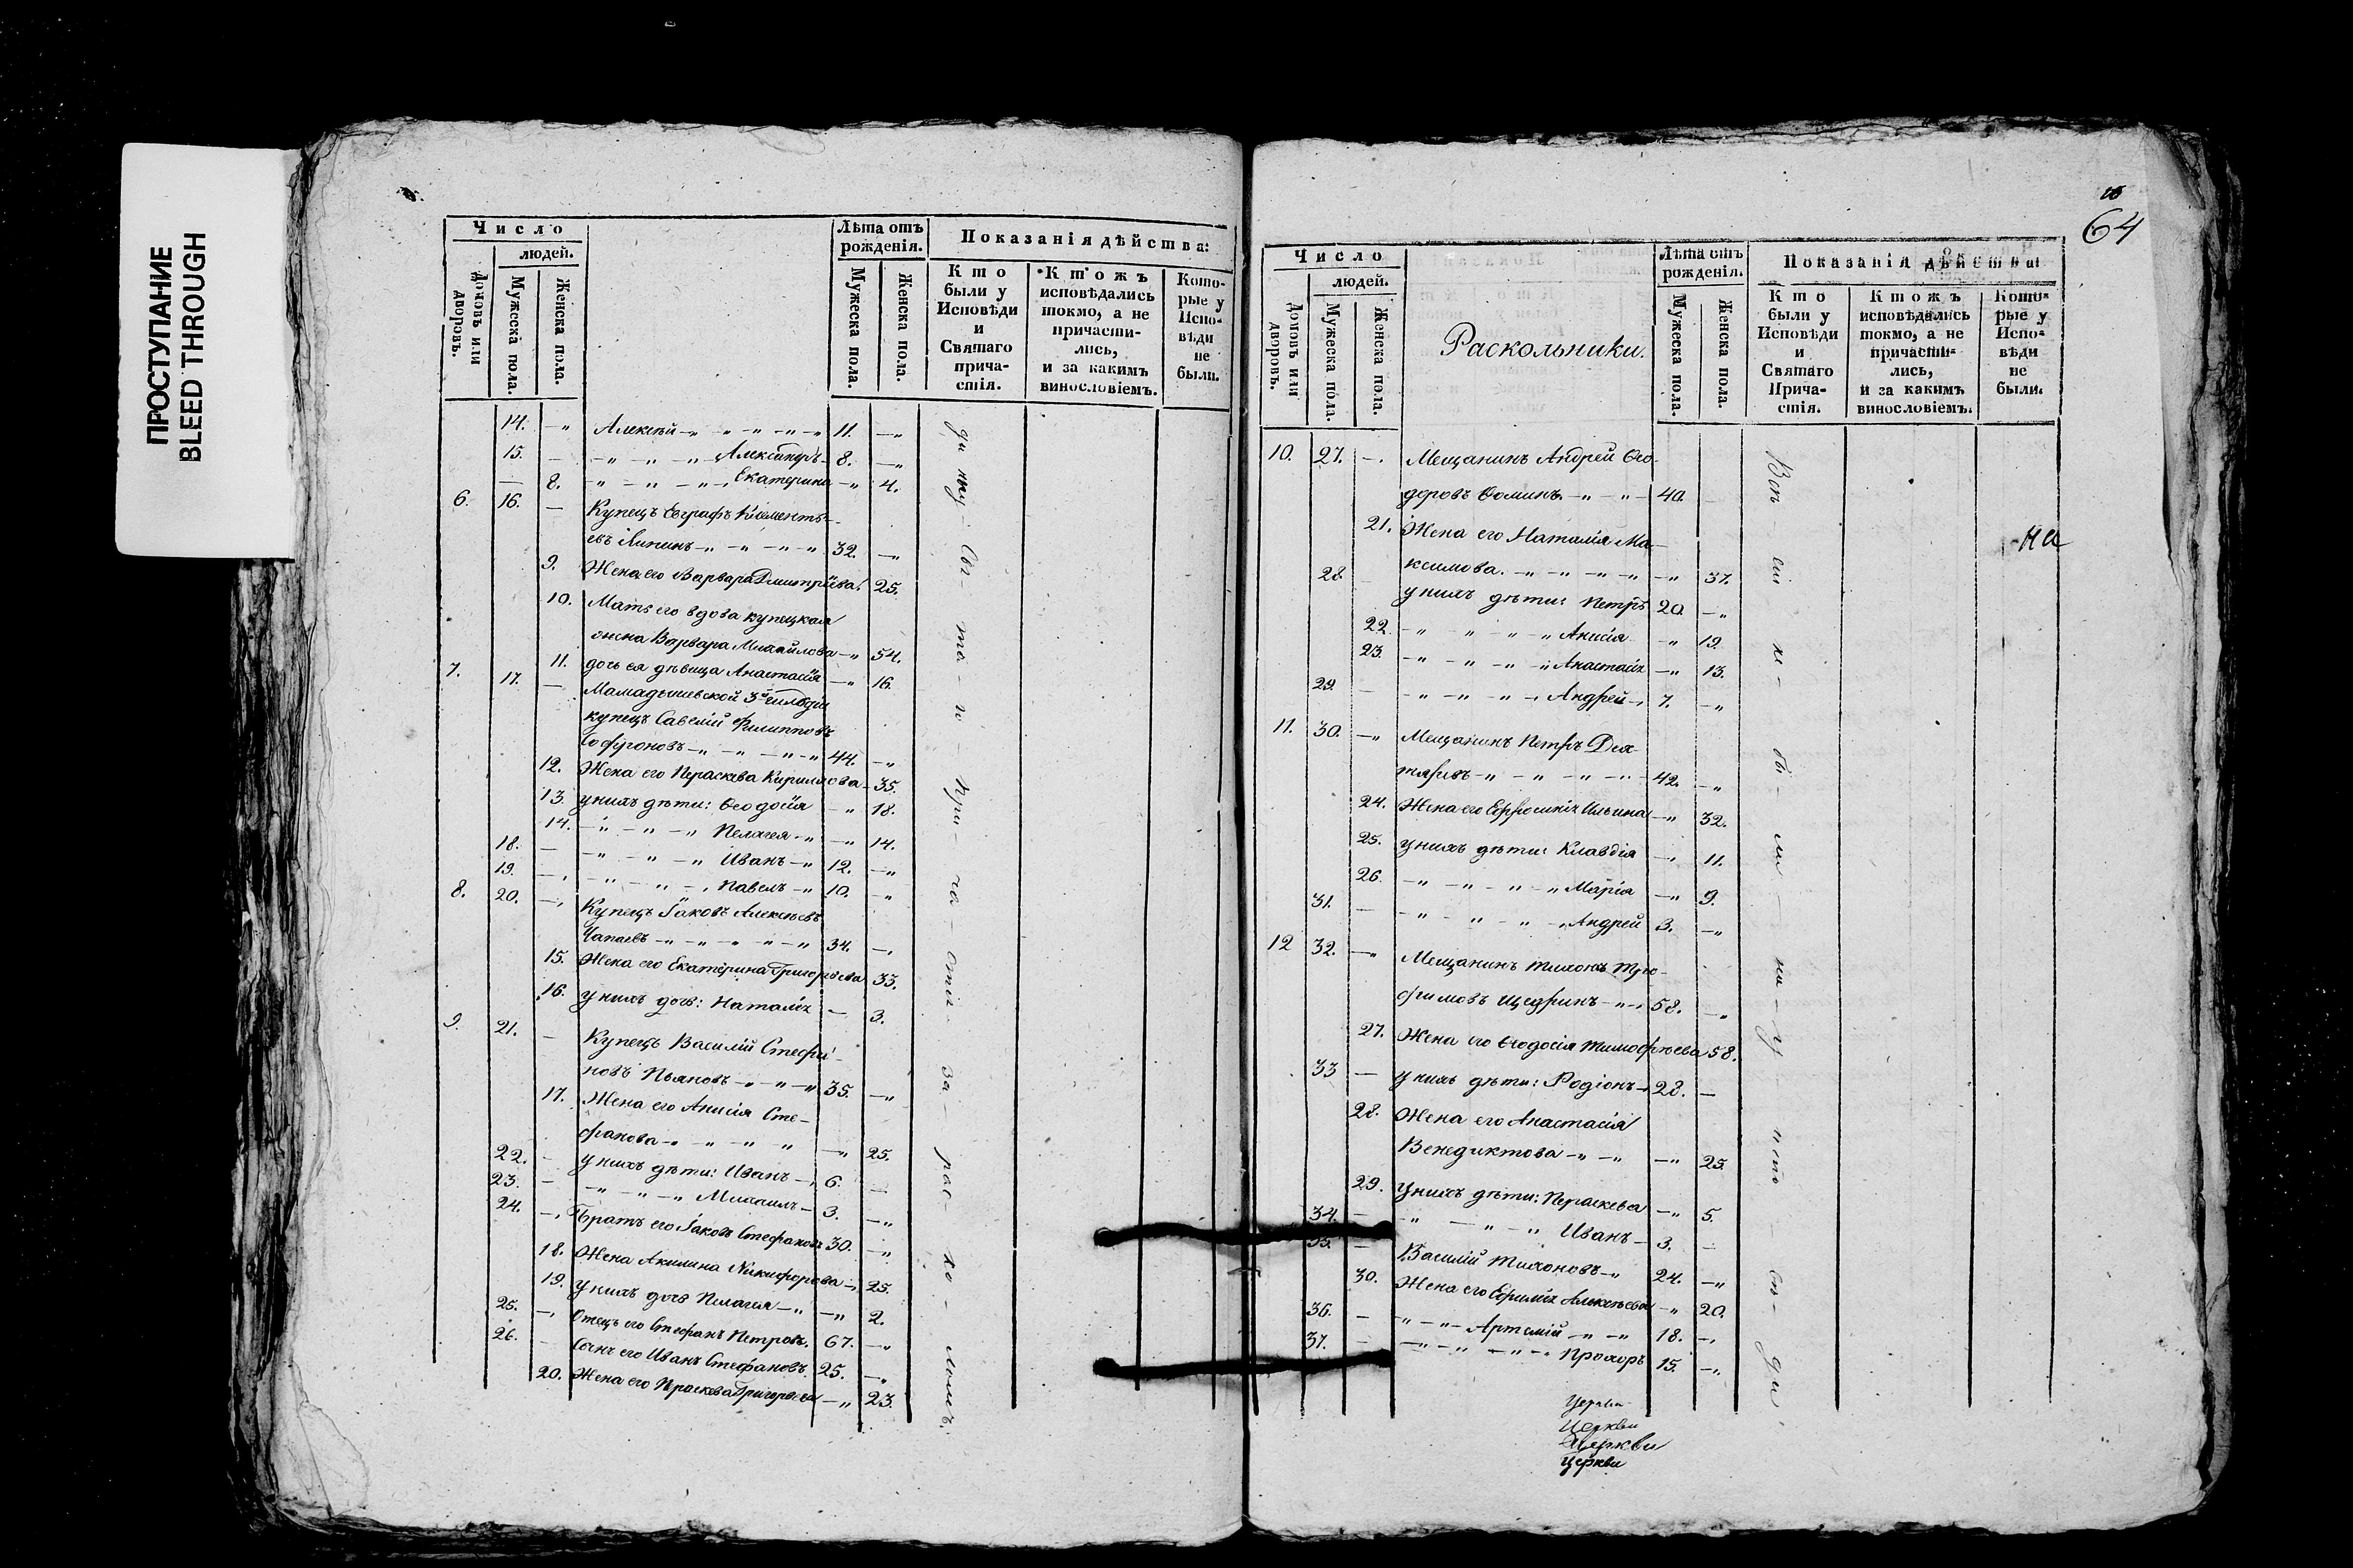 ПРОСТУПАНИЕ
BLEED THROUGH
Число
людей.
Домовъ или дворовъ.
Мужеска пола.
Женска пола.
Лѣта отъ рожденія.
Мужеска пола.
Женска пола.
Показанія дѣйства:
Кто были у Исповѣди и Святаго причастія.
Ктожъ исповѣдались токмо, а не причастились, и за какимъ винословіемъ.
Которые у Исповѣди не были.
14. Алексѣй 11.
15. Александръ 8.
8. Екатерина 4.
6. 16. Купецъ Евграфъ Клементь-
евъ Липинъ 32.
9. Жена его Варвара Дмитріева 25.
10. Мать его вдова купецкая
жена Варвара Михайлова 54.
11. дочь ея дѣвица Анастасія 16.
7. 17. Мамадышевской 3й гильдіи
купецъ Савелій Филипповъ
Софроновъ 44.
12. Жена его Параскева Кириллова 35.
13. у нихъ дѣти: Ѳеодосія 18.
14. Пелагея 14.
18. Иванъ 12.
19. Павелъ 10.
8. 20. Купецъ Іаковъ Алексѣевъ
Чапаевъ 34.
15. Жена его Екатерина Григорьева 33.
16. у нихъ дочь: Наталія 3.
9. 21. Купецъ Василій Стефа-
новъ Пьяновъ 35.
17. Жена его Анисія Сте-
фанова 25.
22. у нихъ дѣти: Иванъ 6.
23. Михаилъ 3.
24. Братъ его Іаковъ Стефановъ 30.
18. Жена Акилина Никифорова 25.
19. у нихъ дочь Пелагея 2.
25. Отецъ его Стефанъ Петровъ. 67.
26. Сынъ его Иванъ Стефановъ. 25.
20. Жена его Праскева Григорьева 23.
при- ча- сті- за- рас- ко- ломъ.
64
Число
людей.
Домовъ или дворовъ.
Мужеска пола.
Женска пола.
Раскольники.
Лѣта отъ рожденія.
Мужеска пола.
Женска пола.
Показанія дѣйства:
Кто были у Исповѣди и Святаго Причастія.
Ктожъ исповѣдались токмо, а не причастились, и за какимъ винословіемъ.
Которые у Исповѣди не были.
10. 27. Мещанинъ Андрей Ѳео-
доровъ Ѳоминъ 40.
21. Жена его Наталія Ма-
ксимова. 37.
28. у нихъ дѣти: Петръ 20.
22. Анисія 19.
23. Анастасія 13.
29. Андрей 7.
11. 30. Мещанинъ Петръ Дех-
тяревъ 42.
24. Жена его Ефросинія Ильина 32.
25. у нихъ дѣти: Клавдія 11.
26. Марія 9.
31. Андрей 3.
12 32. Мещанинъ Тихонъ Тро-
фимовъ Щедринъ 58.
27. Жена его Ѳеодосія Тимофѣева 58.
33 у нихъ дѣти: Родіонъ 28.
28. Жена его Анастасія
Венедиктова 25.
29. У нихъ дѣти: Параскева 5.
34. Иванъ 3.
35. Василій Тихоновъ 24.
30. Жена его Ефимія Алексѣева 20.
36. Артемій 18.
37. Прохоръ 15.
не
Церкви
Церкви
Церкви
Церкви